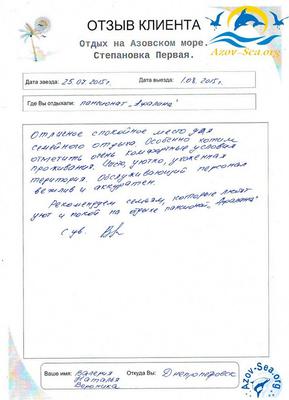 ОТЗЫВ КЛИЕНТА
Azov-Sea.org
Отдых на Азовском море.
Степановка Первая.
Дата заезда: 25.07.2015г.
Дата выезда: 1.08.2015г.
Где Вы отдыхали: пансионат „Афалина"
Отличное спокойное место для
семейного отдыха. Особенно хотим
отметить очень комфортные условия
проживания. Чисто, уютно, ухоженная
територия. Обслуживающий персонал
вежлив и аккуратен.
Рекомендуем семьям, которые любят
уют и покой на отдыхе пансионат „Афалина"
С ув.
Ваше имя: Валерия
Наталья
Вероника
Откуда Вы: Днепропетровск
Azov-Sea.org